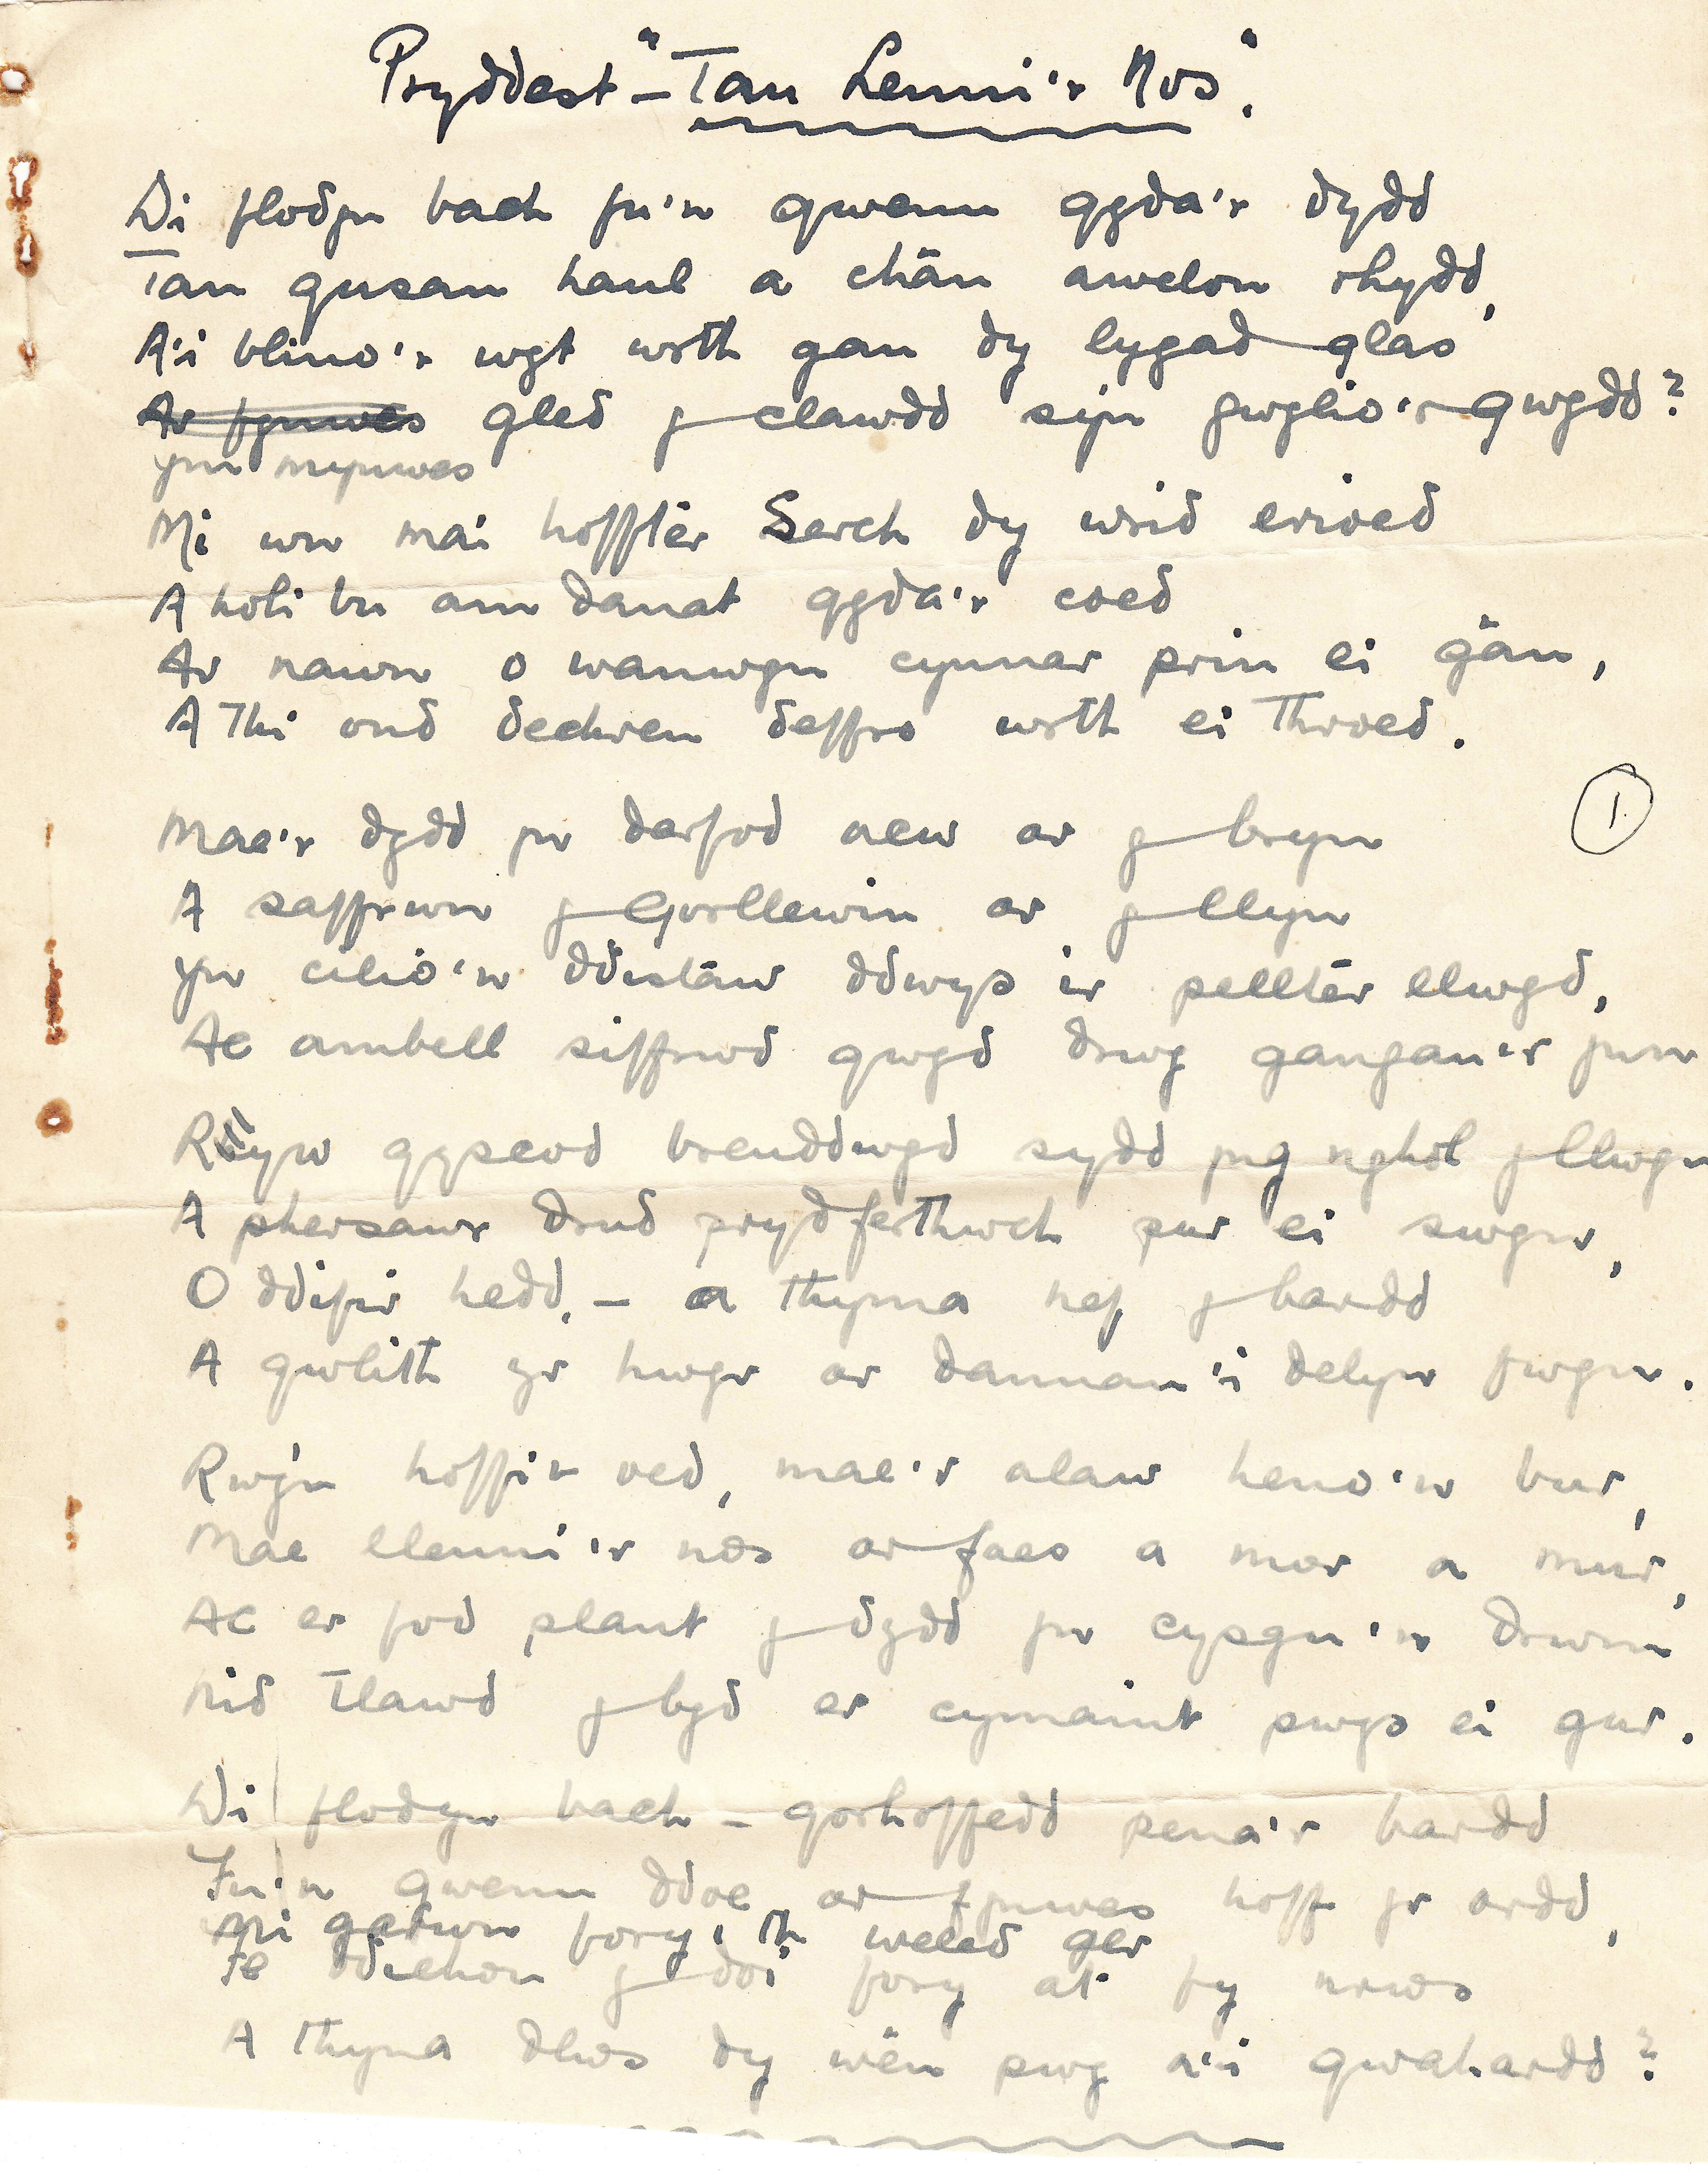 Pryddest – "Tan Lenni'r Nos".
Di flodyn bach fu'n gwenu gyda'r dydd
Tan gusan haul a chân awelon rhydd,
A'i blino'r wyt wrth gau dy lygad glas
Ar fynwes gled y clawdd sy'n gwylio'r gwŷdd?
ym mynwes
Mi wn mai hoffter Serch dy wrid erioed
A holi bu am danat gyda'r coed
Ar nawn o wanwyn cynnar prin ei gân,
A Thi ond dechreu deffro wrth ei throed.
1.
Mae'r dydd yn darfod acw ar y bryn
A saffrwn y Gorllewin ar y llyn
Yn cilio'n ddistaw ddwys i'r pellter llwyd,
Ac ambell siffrwd gwyd drwy gangau'r ynn
Rhyw gysgod breuddwyd sydd yng nghôl y llwyn
A phersawr drud prydferthwch pur ei swyn,
O ddifyr hedd, – a thyma nef y bardd
A gwlith yr hwyr ar dannau'i delyn fwyn.
Rwy'n hoffi'r oed, mae'r alaw heno'n bur,
Mae llenni'r nos ar faes a mor a mur,
Ac er fod plant y dydd yn cysgu'n drwm
Nid tlawd y byd er cymaint pwys ei gur.
Di flodyn bach – gorhoffedd pena'r bardd
Fu'n gwenu ddoe ar fynwes hoff yr ardd,
Mi garwn fory'th weled ger
Fe ddichon y doi fory at fy nrws
A thyna dlws dy wên pwy a'i gwahardd?